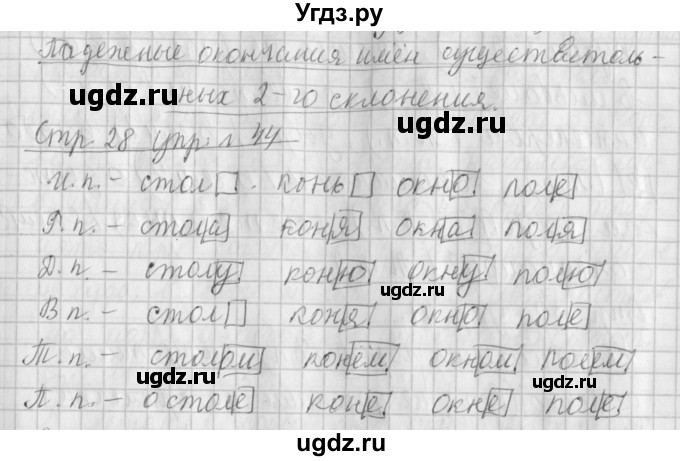 Угдз.ру
Падежные окончания имён существитель-
ных 2-го склонения.
Стр. 28 упр. 44
И.п. - стол конь окно поле
Р.п. - стола коня окна поля
Д.п. - столу коню окну полю
В п. - стол коня окно поле
Т.п. - столом конём окном полем
П.п. - о столе коне окне поле
ugdz.ru
ugdz.ru
ugdz.ru
ugdz.ru
ugdz.ru
ugdz.ru
ugdz.ru
ugdz.ru